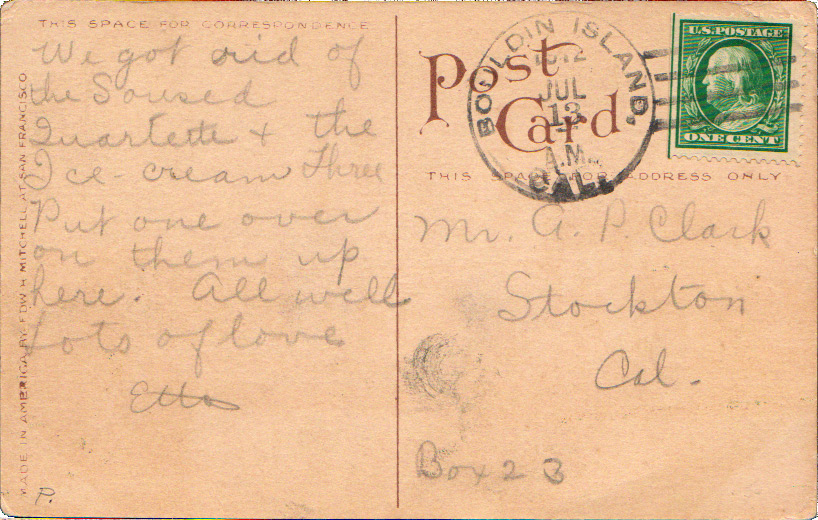 THIS SPACE FOR CORRESPONDENCE
We got rid of
the Soused
Quartette + the
Ice-cream Three
Put one over
on them up
here. All well
Lots of love
Etta
MADE IN AMERICA BY EDW H MITCHELL AT SAN FRANCISCO
P.
Post
Card
THIS SPACE FOR ADDRESS ONLY
BOULDIN ISLAND,
1912
JUL
13
A.M.
CAL.
U.S. POSTAGE
ONE CENT
Mr. A. P. Clark
Stockton
Cal.
Box 23